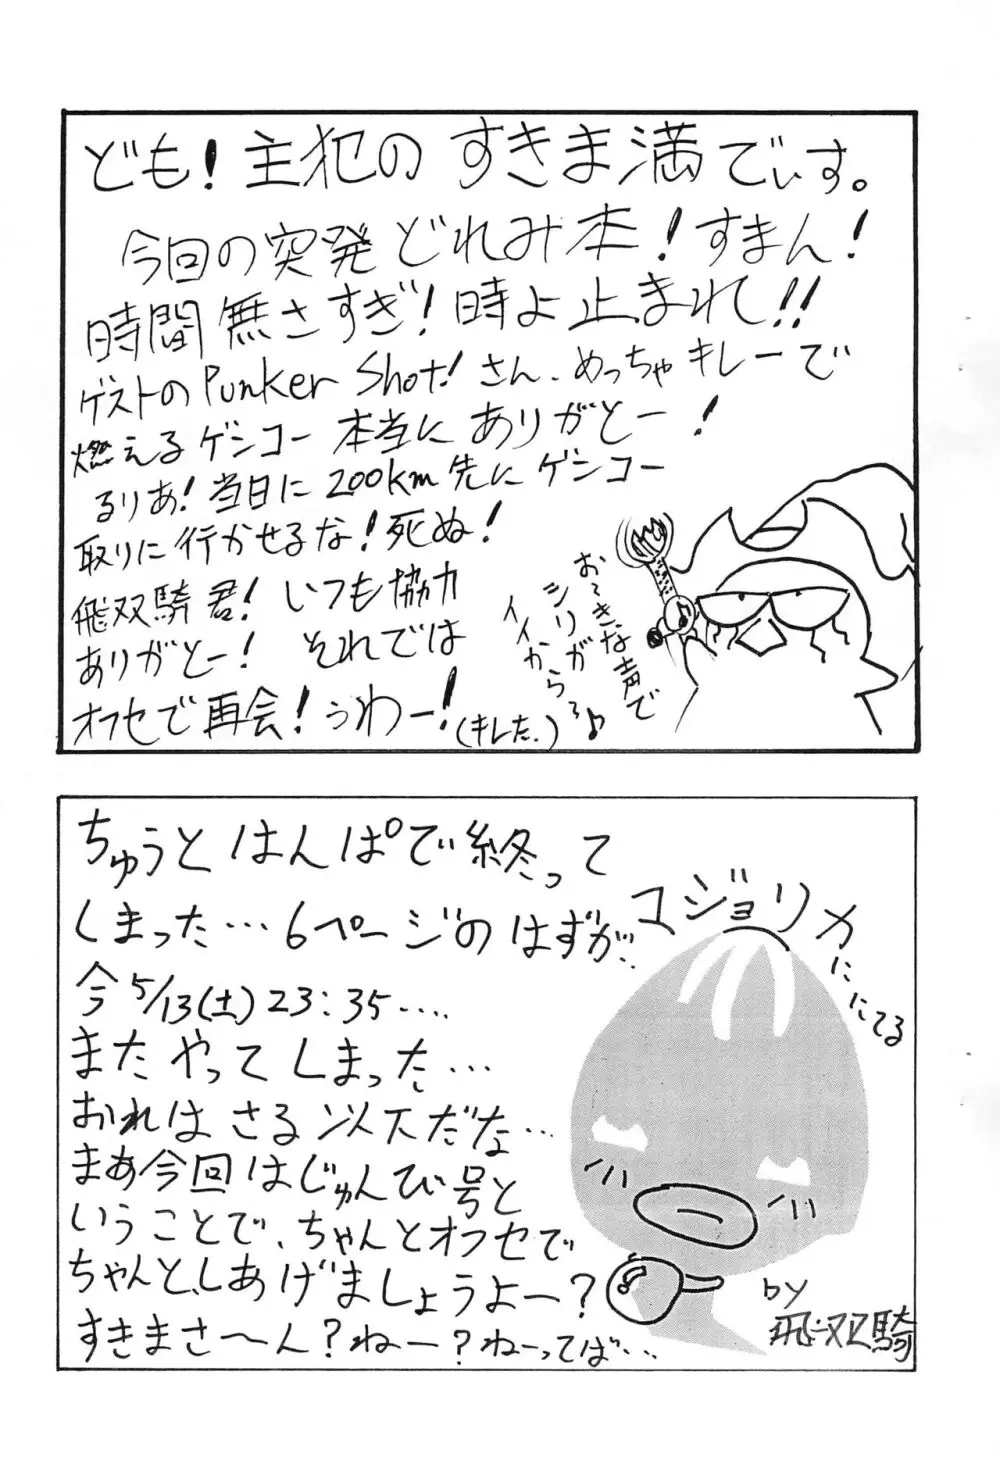 ども！主犯のすきま満でぃす。
今回の突発どれみ本！すまん！
時間無さすぎ！時よ止まれ！！
ゲストのPunker Shot！さん、めっちゃキレーで
燃えるゲンコー本当にありがとー！
るりあ！当日に200km先にゲンコー
取りに行かせるな！死ぬ！
飛双騎君！いつも協力
ありがとー！それでは
オフセで再会！うわー！(キレた。)
おっきな声で
シリガ
イイから♪
ちゅうとはんぱで終って
しまった…6ページのはずが…
今5/13(土)23:35….
またやってしまった…
おれはさる以下だな…
まあ今回はじゅんび号と
いうことで、ちゃんとオフセで
ちゃんと、しあげましょうよー？
すきまさ〜ん？ねー？ねーってば…
マジョリカににてる
by
飛双騎